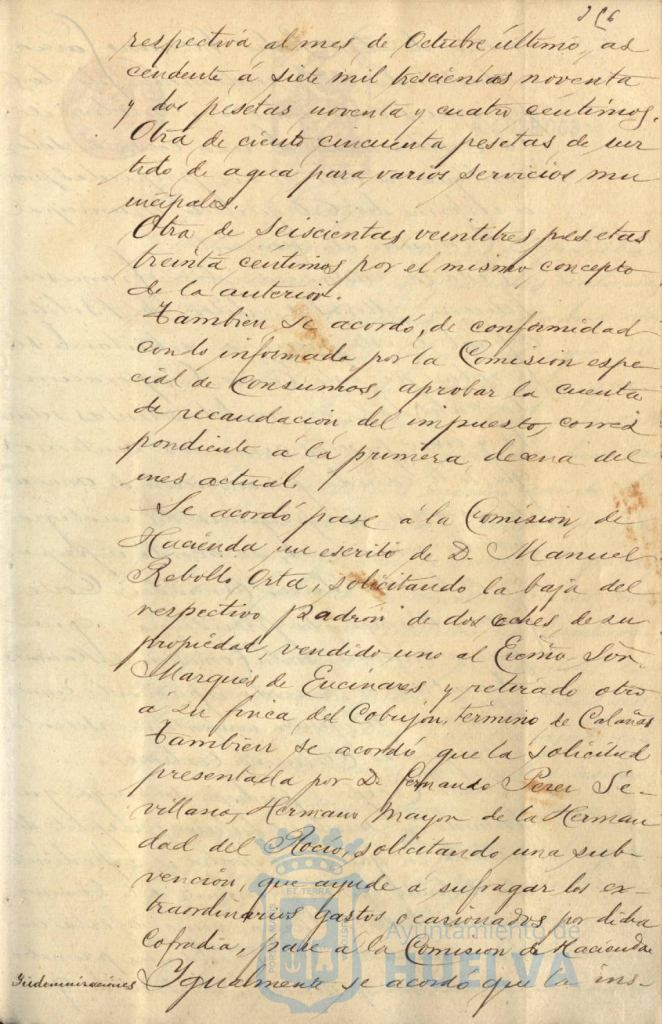 respectiva al mes de Octubre último, as
cendente á siete mil trescientas noventa
y dos pesetas noventa y cuatro centimos.
Otra de ciento cincuenta pesetas de sur
tido de agua para varios servicios mu
nicipales.
Otra de seiscientas veintitres pesetas
treinta centimos por el mismo concepto
de la anterior.
Tambien se acordó, de conformidad
con lo informado por la Comision espe
cial de Consumos, aprobar la cuenta
de recaudación del impuesto, corres
pondiente á la primera decena del
mes actual.
Se acordó pase á la Comision de
Hacienda un escrito de D. Manuel
Rebollo Orta, solicitando la baja del
respectivo padrón de dos coches de su
propiedad, vendido uno al Excmo Sor.
Marques de Encinares y retirado otro
á su finca del Cobujon, término de Calañas
Tambien se acordó que la solicitud
presentada por D. Fernando Perez Se-
villano, Hermano Mayor de la Herman
dad del Rocio, solicitando una sub-
vención, que ayude á sufragar los ex-
traordinarios gastos ocasionados por dicha
Cofradia, pase á la Comision de Hacienda
Yndemnizaciones Ygualmente se acordó que la ins-
Ayuntamiento de
HUELVA